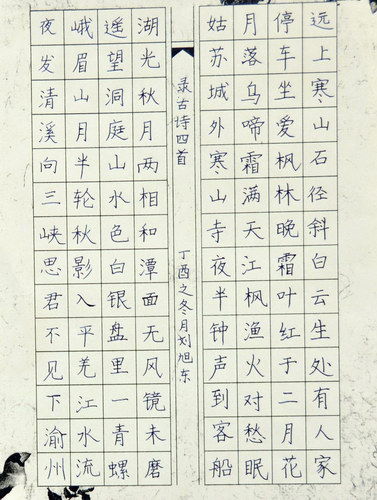 远上寒山石径斜白云生处有人家
停车坐爱枫林晚霜叶红于二月花
月落乌啼霜满天江枫渔火对愁眠
姑苏城外寒山寺夜半钟声到客船
录古诗四首 丁酉之冬月刘旭东
湖光秋月两相和潭面无风镜未磨
遥望洞庭山水色白银盘里一青螺
峨眉山月半轮秋影入平羌江水流
夜发清溪向三峡思君不见下渝州